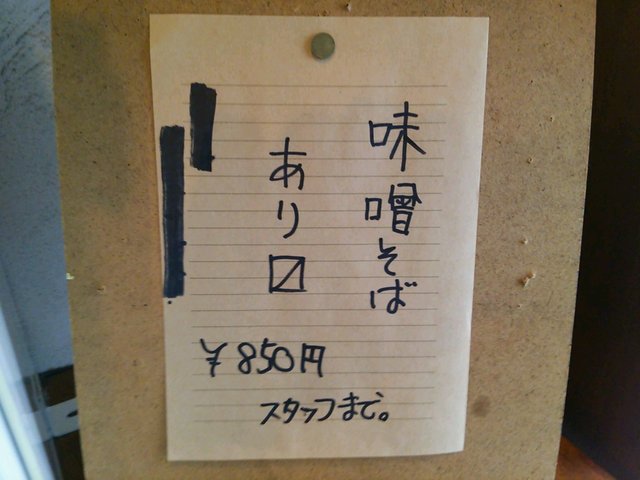 味噌そば
あり〼
¥850円
スタッフまで。